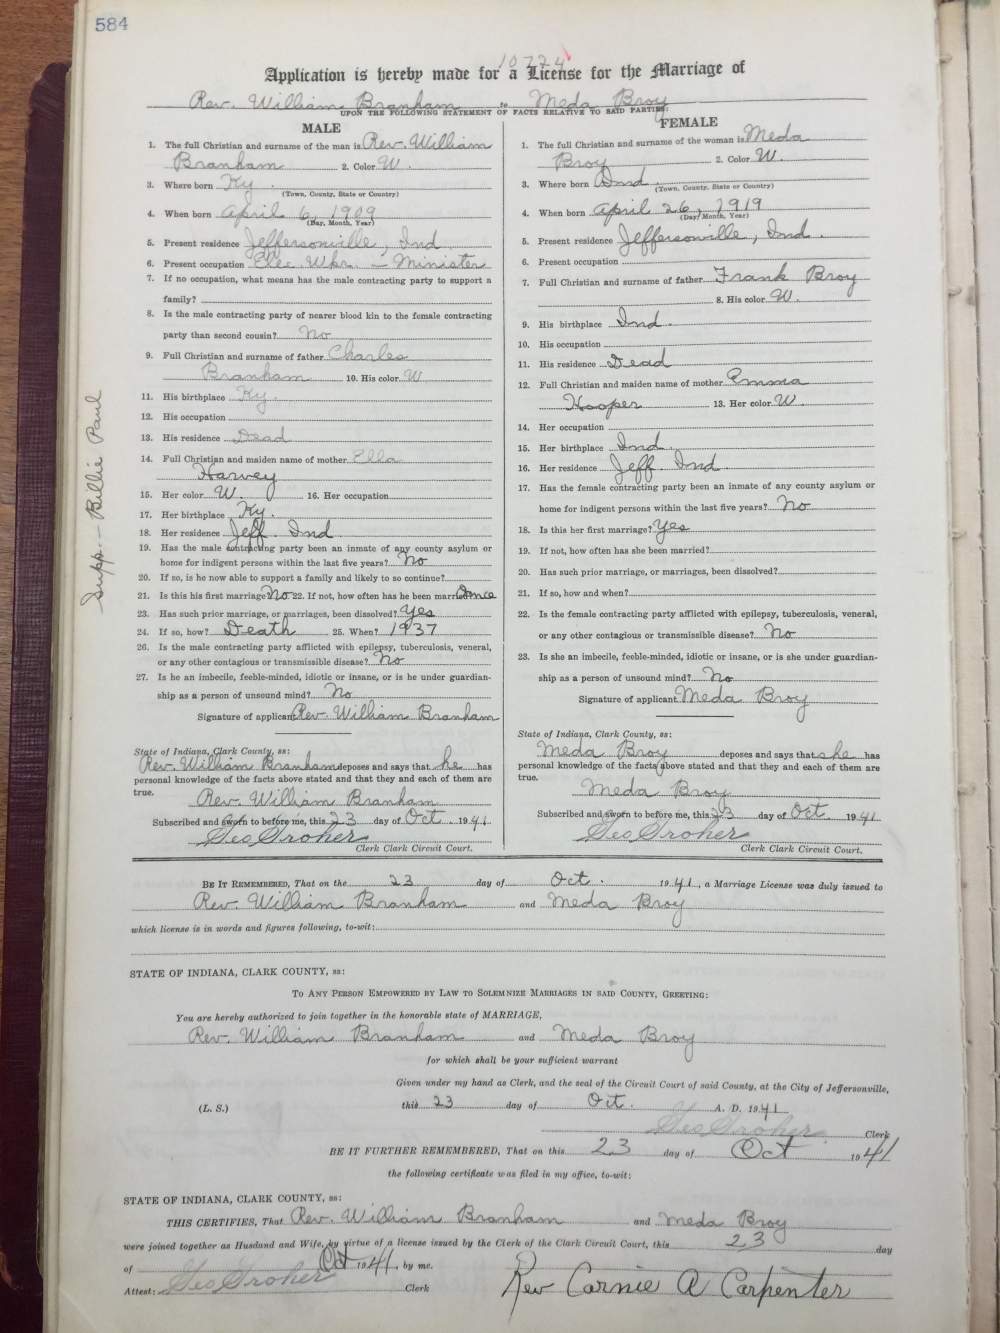 584
10724
Application is hereby made for a License for the Marriage of
Rev. William Branham to Meda Broy
UPON THE FOLLOWING STATEMENT OF FACTS RELATIVE TO SAID PARTIES:
MALE
1. The full Christian and surname of the man is Rev. William
Branham 2. Color W.
3. Where born Ky.
(Town, County, State or Country)
4. When born April 6, 1909
(Day, Month, Year)
5. Present residence Jeffersonville, Ind
6. Present occupation Elec. Wkr. - Minister
7. If no occupation, what means has the male contracting party to support a
family?
8. Is the male contracting party of nearer blood kin to the female contracting
party than second cousin? No
9. Full Christian and surname of father Charles
Branham 10. His color W
11. His birthplace Ky.
12. His occupation
13. His residence Dead
14. Full Christian and maiden name of mother Ella
Harvey
15. Her color W. 16. Her occupation
17. Her birthplace Ky.
18. Her residence Jeff. Ind
19. Has the male contracting party been an inmate of any county asylum or
home for indigent persons within the last five years? No
20. If so, is he now able to support a family and likely to so continue?
21. Is this his first marriage? No 22. If not, how often has he been married? Once
23. Has such prior marriage, or marriages, been dissolved? Yes
24. If so, how? Death 25. When? 1937
26. Is the male contracting party afflicted with epilepsy, tuberculosis, veneral,
or any other contagious or transmissible disease? No
27. Is he an imbecile, feeble-minded, idiotic or insane, or is he under guardian-
ship as a person of unsound mind? No
Signature of applicant Rev. William Branham
State of Indiana, Clark County, ss:
Rev. William Branham deposes and says that he has
personal knowledge of the facts above stated and that they and each of them are
true.
Rev. William Branham
Subscribed and sworn to before me, this 23 day of Oct. 1941
Geo Groher
Clerk Clark Circuit Court.
Supp. - Billie Paul
FEMALE
1. The full Christian and surname of the woman is Meda
Broy 2. Color W.
3. Where born Ind.
(Town, County, State or Country)
4. When born April 26, 1919
(Day, Month, Year)
5. Present residence Jeffersonville, Ind.
6. Present occupation
7. Full Christian and surname of father Frank Broy
8. His color W.
9. His birthplace Ind.
10. His occupation
11. His residence Dead
12. Full Christian and maiden name of mother Emma
Hooper 13. Her color W.
14. Her occupation
15. Her birthplace Ind
16. Her residence Jeff. Ind.
17. Has the female contracting party been an inmate of any county asylum or
home for indigent persons within the last five years? No
18. Is this her first marriage? Yes
19. If not, how often has she been married?
20. Has such prior marriage, or marriages, been dissolved?
21. If so, how and when?
22. Is the female contracting party afflicted with epilepsy, tuberculosis, veneral,
or any other contagious or transmissible disease? No
23. Is she an imbecile, feeble-minded, idiotic or insane, or is she under guardian-
ship as a person of unsound mind? No
Signature of applicant Meda Broy
State of Indiana, Clark County, ss:
Meda Broy deposes and says that she has
personal knowledge of the facts above stated and that they and each of them are
true.
Meda Broy
Subscribed and sworn to before me, this 23 day of Oct 1941
Geo Groher
Clerk Clark Circuit Court.
BE IT REMEMBERED, That on the 23 day of Oct. 1941, a Marriage License was duly issued to
Rev. William Branham and Meda Broy
which license is in words and figures following, to-wit:
STATE OF INDIANA, CLARK COUNTY, ss:
TO ANY PERSON EMPOWERED BY LAW TO SOLEMNIZE MARRIAGES IN SAID COUNTY, GREETING:
You are hereby authorized to join together in the honorable state of MARRIAGE,
Rev. William Branham and Meda Broy
for which shall be your sufficient warrant
Given under my hand as Clerk, and the seal of the Circuit Court of said County, at the City of Jeffersonville,
(L. S.) this 23 day of Oct. A. D. 1941
Geo Groher Clerk
BE IT FURTHER REMEMBERED, That on this 23 day of Oct 1941
the following certificate was filed in my office, to-wit:
STATE OF INDIANA, CLARK COUNTY, ss:
THIS CERTIFIES, That Rev. William Branham and Meda Broy
were joined together as Husband and Wife, by virtue of a license issued by the Clerk of the Clark Circuit Court, this 23 day
of Oct 1941, by me.
Attest: Geo Groher Clerk Rev Carnie A Carpenter